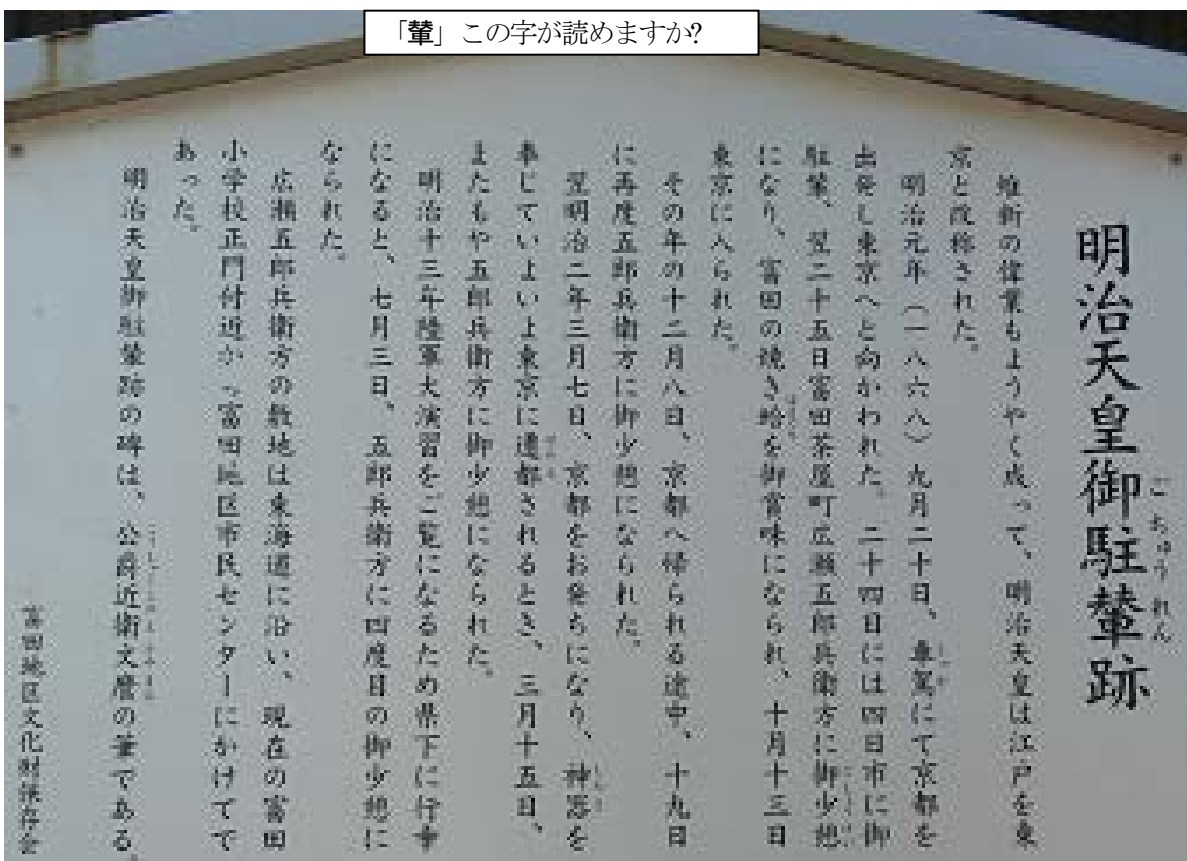 「輦」この字が読めますか?
明治天皇御駐輦跡
ごちゅうれん
維新の偉業もようやく成って、明治天皇は江戸を東
京と改称された。
明治元年(一八六八)九月二十日、車駕にて京都を
出発し東京へと向かわれた。二十四日には四日市に御
駐輦、翌二十五日富田茶屋町広瀬五郎兵衛方に御少憩
になり、富田の焼き蛤を御賞味になられ、十月十三日
東京に入られた。
その年の十二月八日、京都へ帰られる途中、十九日
に再度五郎兵衛方に御少憩になられた。
翌明治二年三月七日、京都をお発ちになり、神器を
奉じていよいよ東京に遷都されるとき、三月十五日、
またもや五郎兵衛方に御少憩になられた。
明治十三年陸軍大演習をご覧になるため県下に行幸
になると、七月三日、五郎兵衛方に四度目の御少憩に
なられた。
広瀬五郎兵衛方の敷地は東海道に沿い、現在の富田
小学校正門付近かっ富田地区市民センターにかけてで
あった。
明治天皇御駐輦跡の碑は、公爵近衛文麿の筆である。
富田地区文化財保存会